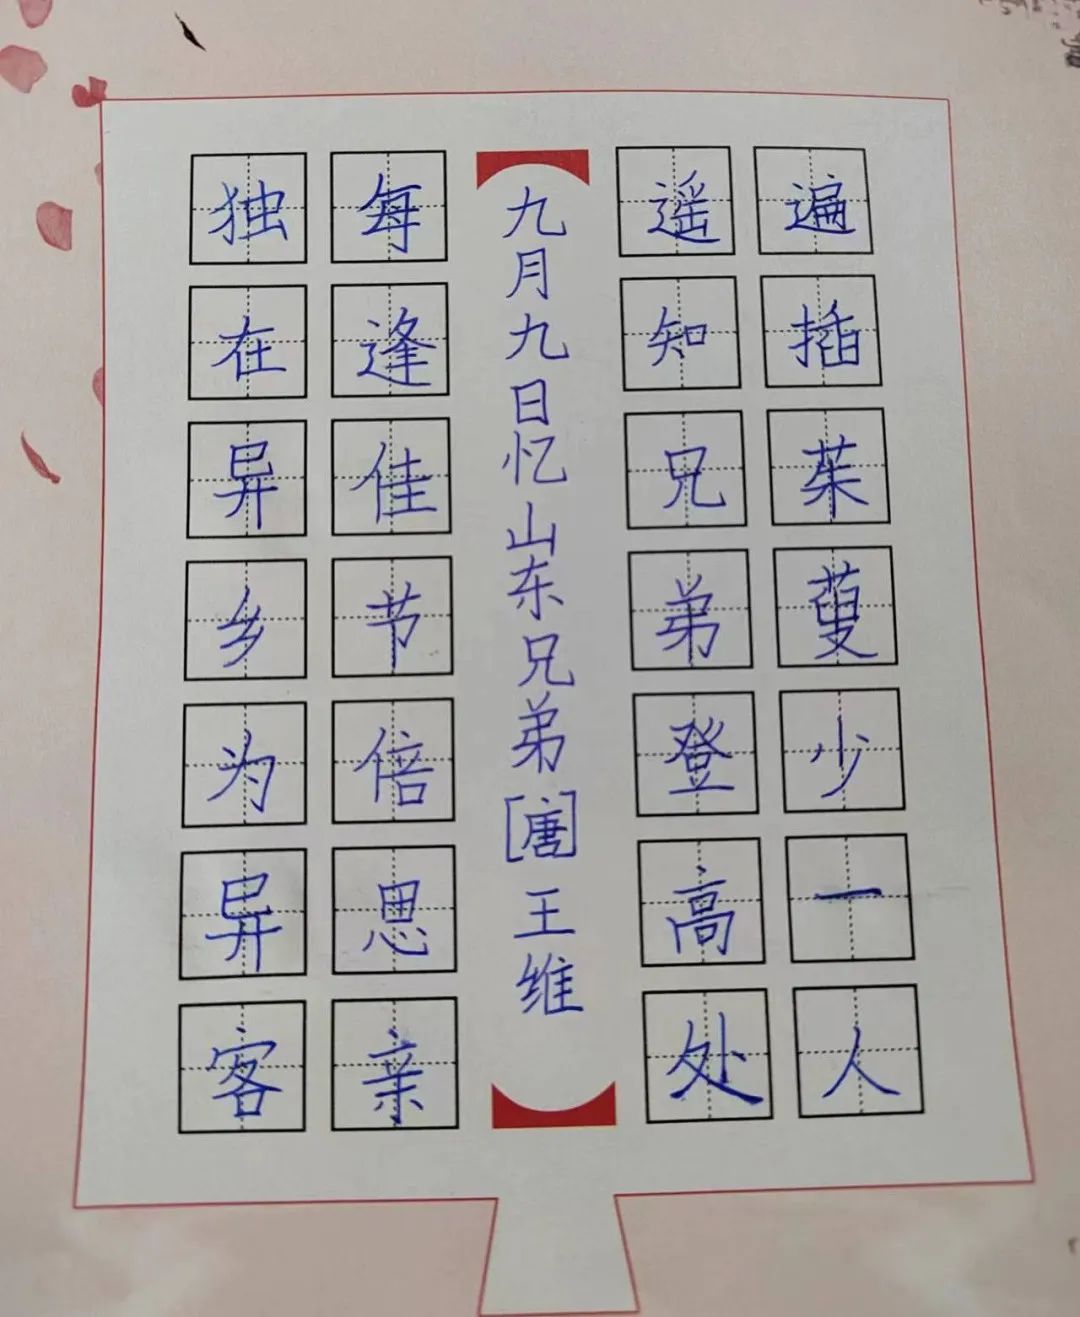 独在异乡为异客
每逢佳节倍思亲
九月九日忆山东兄弟[唐]王维
遥知兄弟登高处
遍插茱蓃少一人